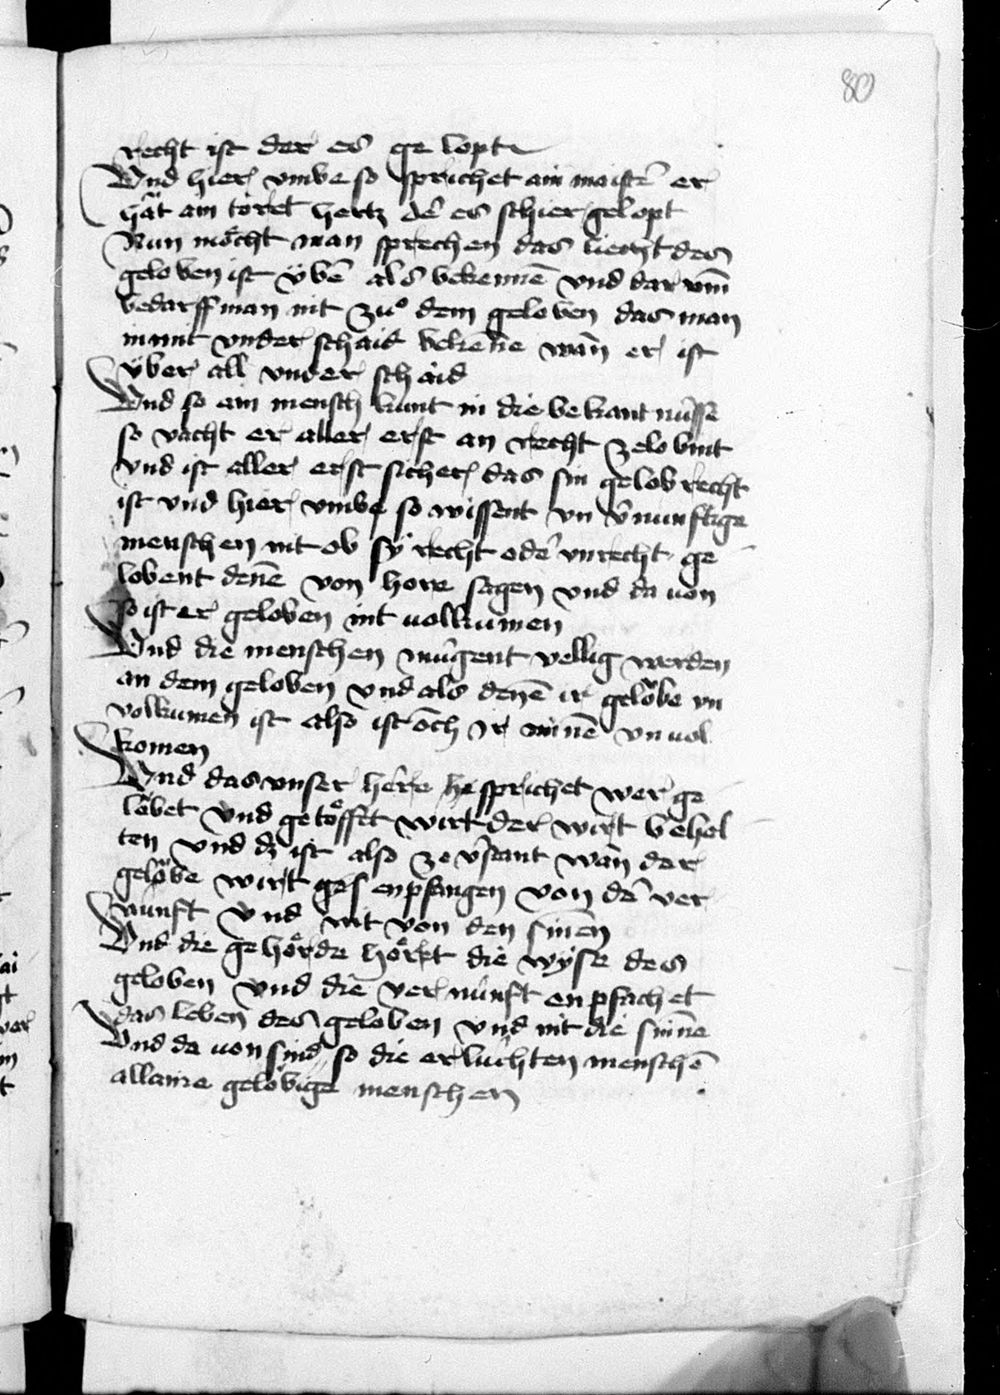 80
recht ist der es ge lopt
Vnd hier vmbe so sprichet ain maistē er
hāt ain toret hertz dē es schier gelopt
Nun mǒcht man sprechen das liecht des
geloben ist ÿbē als bekennē vnd dar vm̄
bedarff man nit zuͦ dem geloben das man
mīnt vnder schaid beken̄e wan̄ er ist
ÿber all vnder schaid
Vnd so ain mensch kunt in die bekant nüsse
so vacht er aller erst an recht gelobint
vnd ist aller erst sicher das sin gelob recht
ist vnd hier vmbe so wissent vn v̄nunftige
menschen nit ob sÿ recht odē vnrecht ge
lobent den̄e von hore sagen vnd da von
so ist er geloben nit volkumen
Vnd die menschen mügent vellig werden
an dem geloben vnd als den̄e ir gelǒbe vn
volkumen ist also ist ǒch ir min̄e vn vol
komen
Vnd das vnser hēre sprichet wer ge
lǒbet vnd getǒffet wirt der wirt behal
ten vnd dz ist also ze v̄stant wan̄ der
gelǒbe wirt enpfangen von dē ver
nünft vnd nit von den sinen
Vnd die gehǒrde hǒret die wÿse des
geloben vnd die vernünft enpfachet
das leben des geloben vnd nit die sin̄e
Vnd da von sind so die erlüchten menschē
allaine gelǒbige menschen